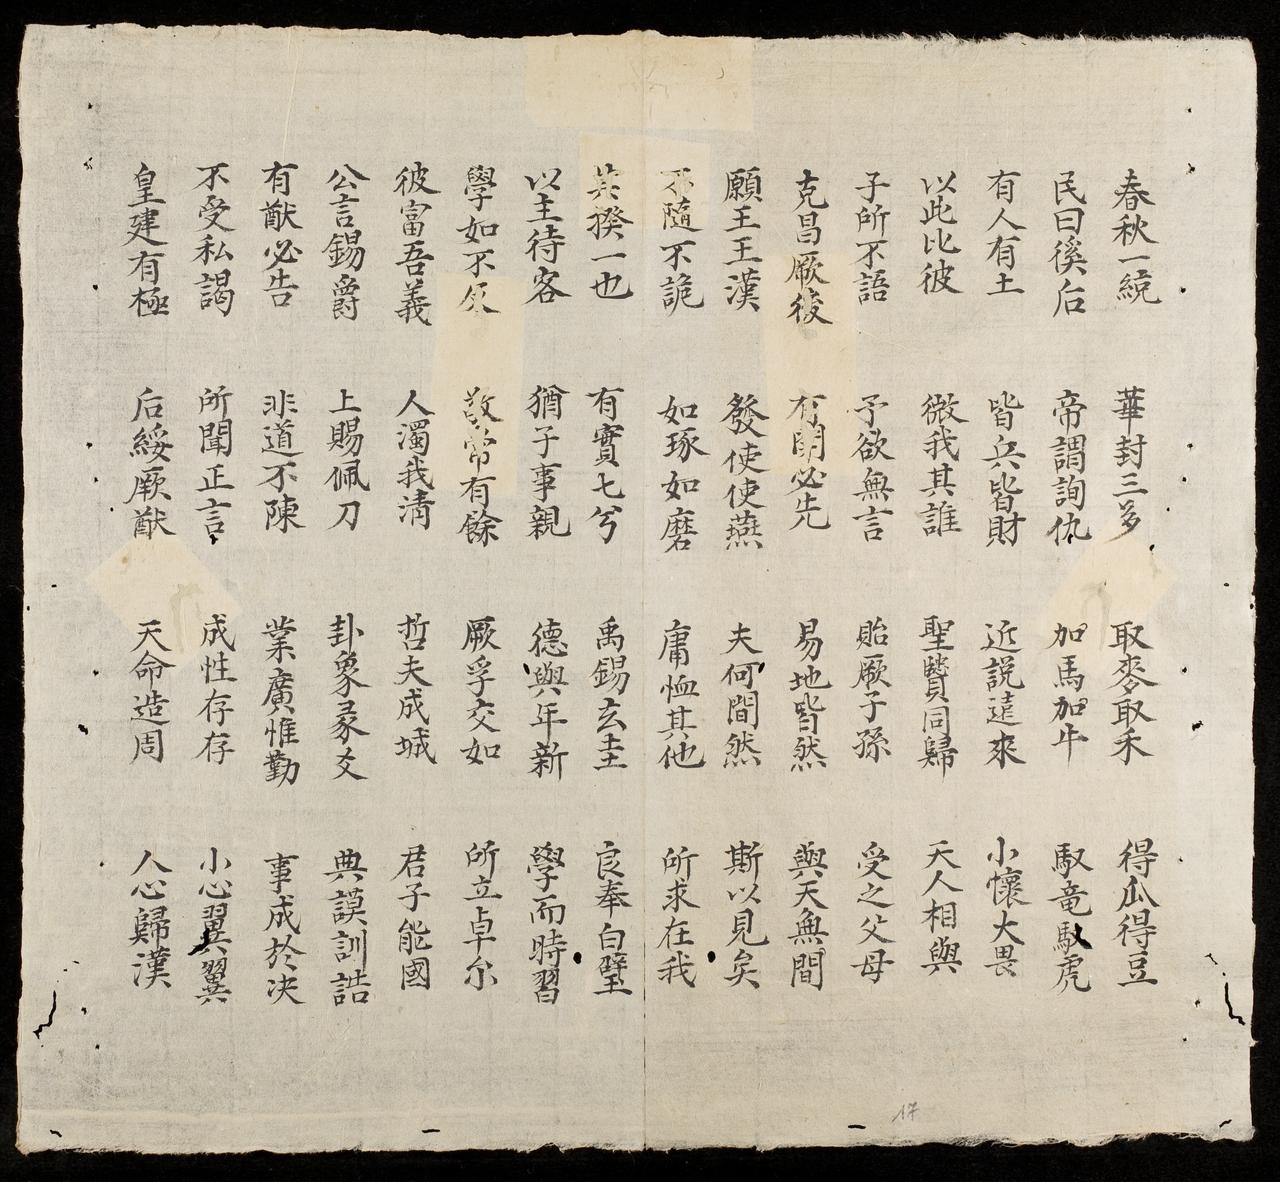 春秋一統 華封三多 取麥取禾 得瓜得豆
民曰徯后 帝謂詢仇 加馬加牛 馭竜馭虎
有人有土 皆兵皆財 近説遠來 小懷大畏
以此比彼 微我其誰 聖賢同歸 天人相與
子所不語 予欲無言 貽厥子孫 受之父母
克昌厥後 有開必先 易地皆然 與天無間
願王王漢 發使使燕 夫何間然 斯以見矣
不隨不詭 如琢如磨 庸恤其他 所求在我
其揆一也 有實七兮 禹錫玄圭 良奉白璧
以主待客 猶子事親 德與年新 學而時習
學如不及 敬常有餘 厥孚交如 所立卓尒
彼富吾義 人濁我清 哲夫成城 君子能國
公言錫爵 上賜佩刀 卦象彖爻 典謨訓誥
有猷必告 非道不陳 業廣惟勤 事成於决
不受私謁 所聞正言 成性存存 小心翼翼
皇建有極 后綏厥猷 天命造周 人心歸漢
17